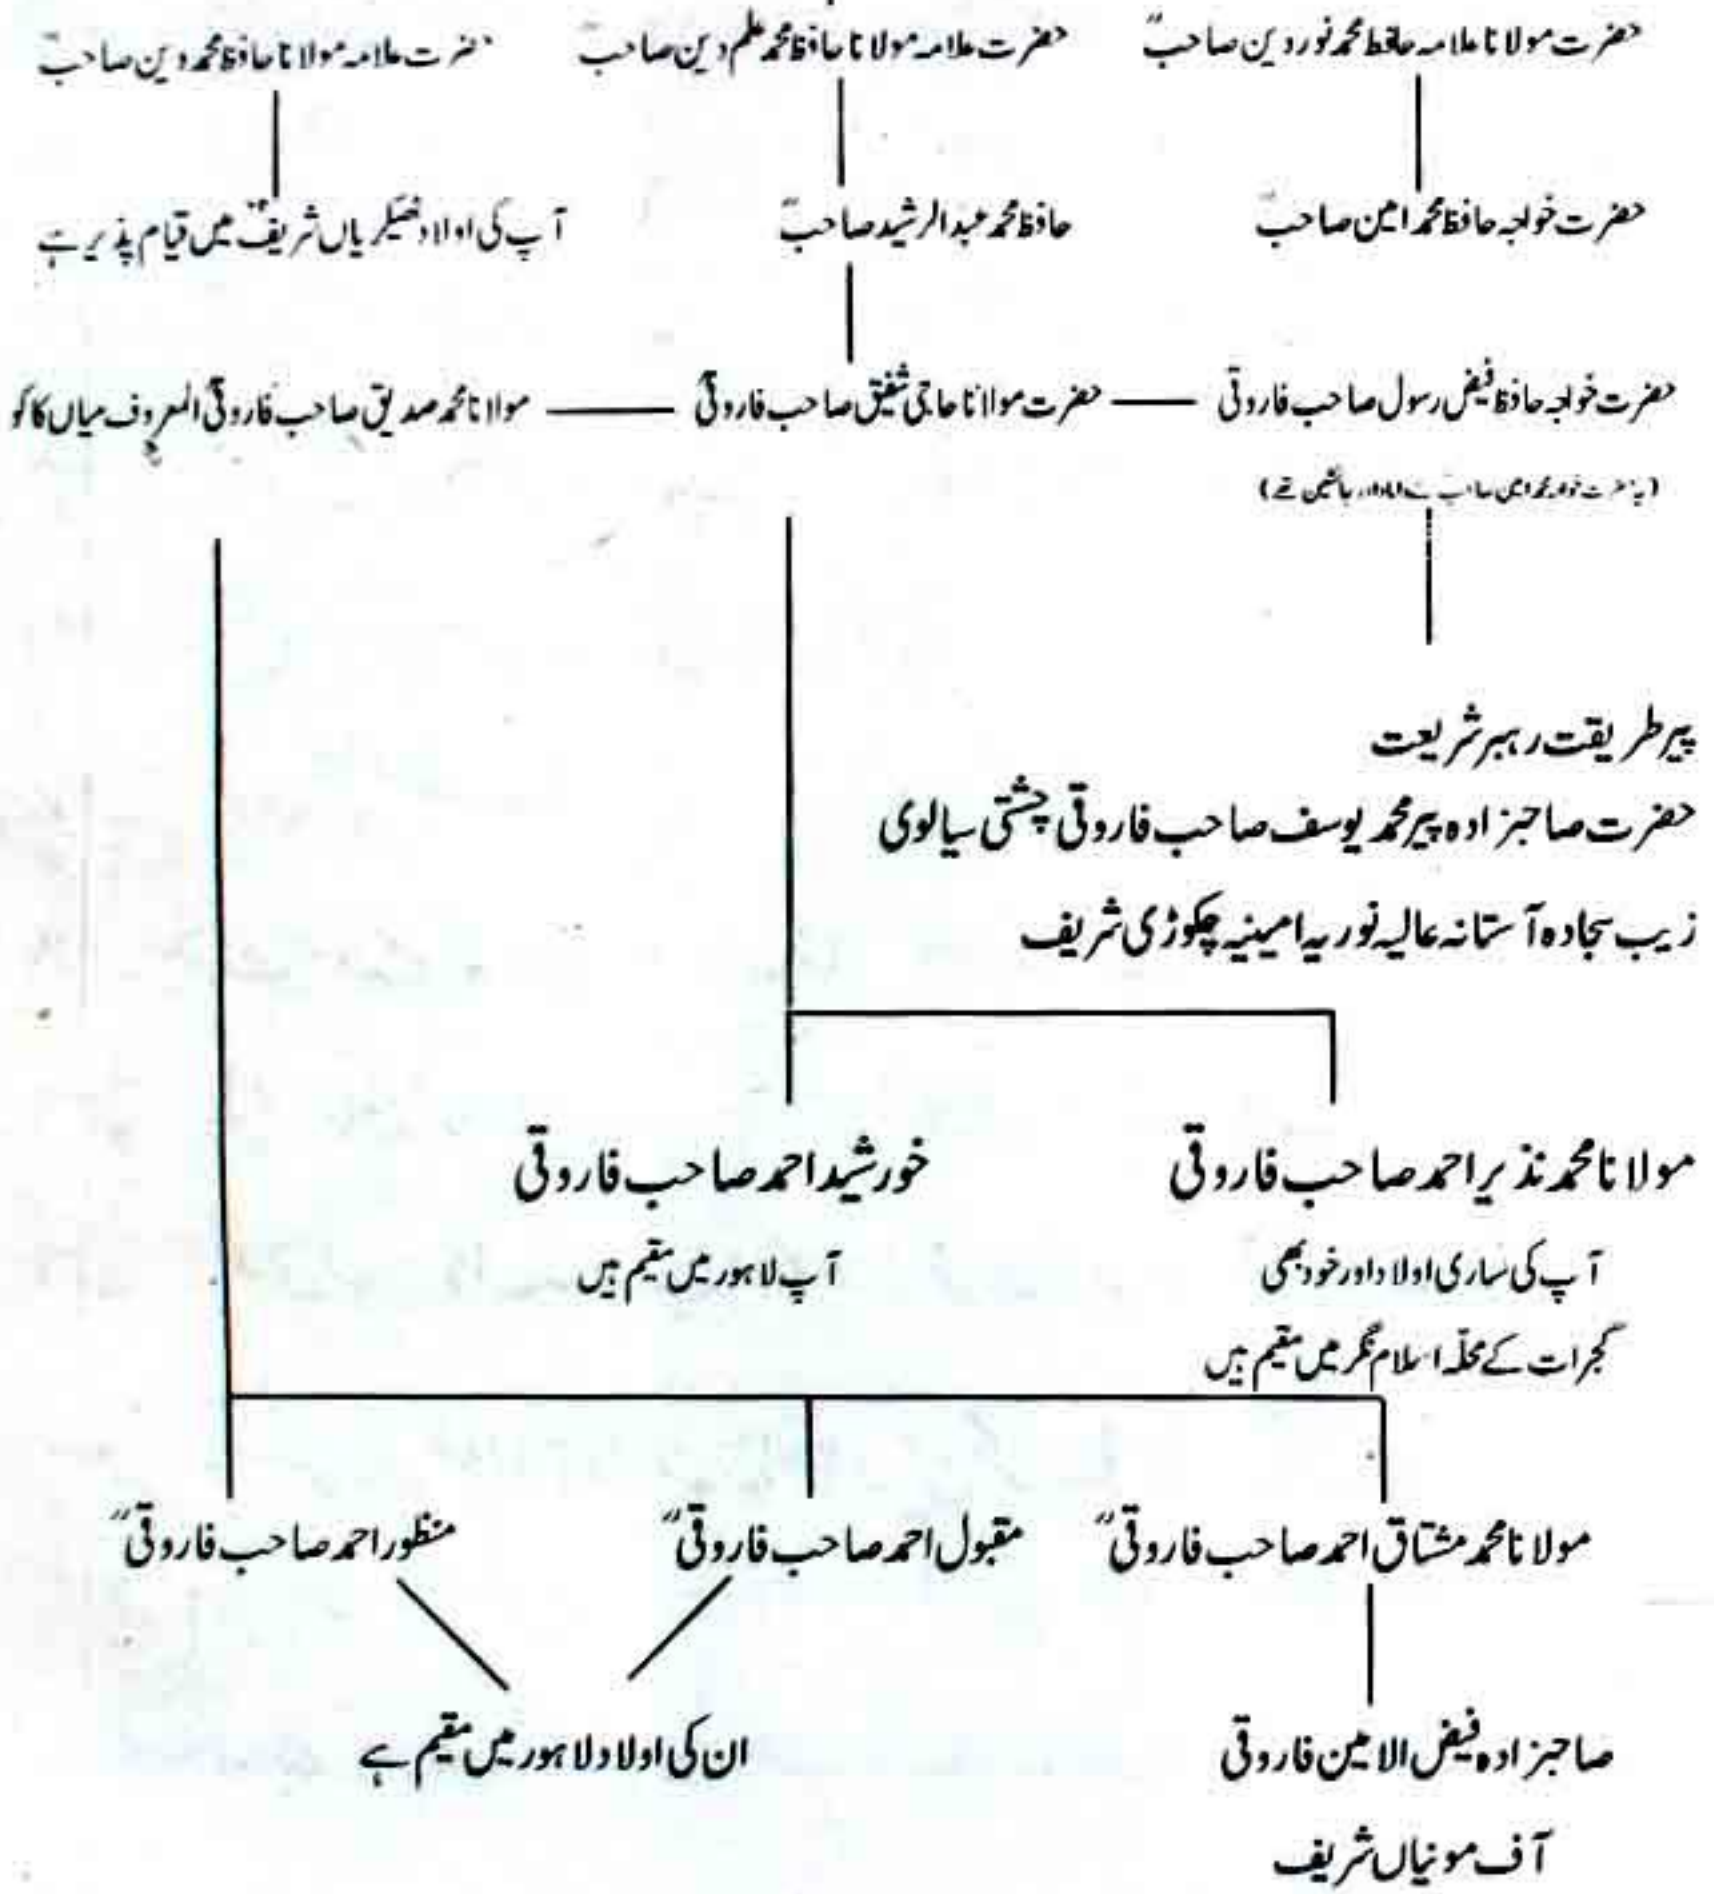 حضرت مولانا علامہ حافظ محمد نور دین صاحبؒ
حضرت علامہ مولانا حافظ محمد علم دین صاحبؒ
حضرت علامہ مولانا حافظ محمد دین صاحبؒ
حضرت خواجہ حافظ محمد امین صاحبؒ
حافظ محمد عبدالرشید صاحبؒ
آپ کی اولاد ٹھیکریاں شریف میں قیام پذیر ہے
حضرت خواجہ حافظ فیض رسول صاحب فاروقی
حضرت مولانا حاجی شفیق صاحب فاروقیؒ
مولانا محمد صدیق صاحب فاروقیؒ المعروف میاں کاکو
(یہ حضرت خواجہ محمد امین صاحب کے داماد اور جانشین تھے)
پیر طریقت رہبر شریعت
حضرت صاحبزادہ پیر محمد یوسف صاحب فاروقی چشتی سیالوی
زیب سجادہ آستانہ عالیہ نوریہ امینیہ چکوڑی شریف
مولانا محمد نذیر احمد صاحب فاروقی
خورشید احمد صاحب فاروقی
آپ کی ساری اولاد اور خود بھی
آپ لاہور میں مقیم ہیں
گجرات کے محلّہ اسلام نگر میں مقیم ہیں
مولانا محمد مشتاق احمد صاحب فاروقیؒ
مقبول احمد صاحب فاروقیؒ
منظور احمد صاحب فاروقیؒ
صاحبزادہ فیض الامین فاروقی
ان کی اولاد لاہور میں مقیم ہے
آف مونیاں شریف